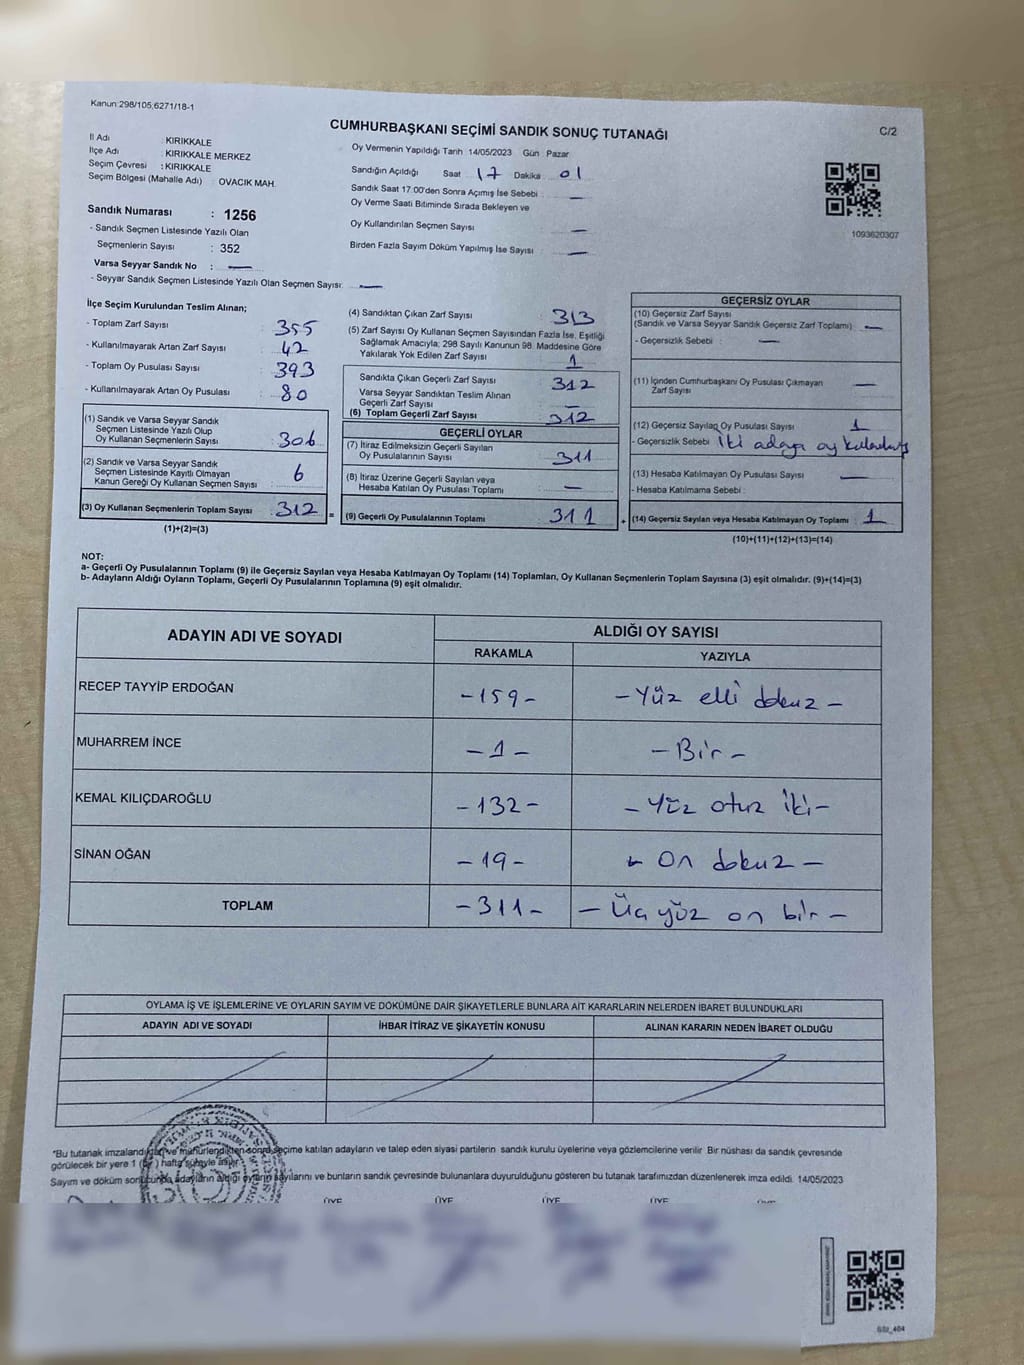 Kanun:298/105,6271/18-1
CUMHURBAŞKANI SEÇİMİ SANDIK SONUÇ TUTANAĞI
C/2
İl Adı : KIRIKKALE
İlçe Adı : KIRIKKALE MERKEZ
Seçim Çevresi : KIRIKKALE
Seçim Bölgesi (Mahalle Adı) OVACIK MAH.
Sandık Numarası : 1256
- Sandık Seçmen Listesinde Yazılı Olan
Seçmenlerin Sayısı : 352
Varsa Seyyar Sandık No : —
- Seyyar Sandık Seçmen Listesinde Yazılı Olan Seçmen Sayısı: —
Oy Vermenin Yapıldığı Tarih 14/05/2023 Gün Pazar
Sandığın Açıldığı Saat 17 Dakika 01
Sandık Saat 17.00'den Sonra Açımış İse Sebebi : —
Oy Verme Saati Bitiminde Sırada Bekleyen ve
Oy Kullandırılan Seçmen Sayısı : —
Birden Fazla Sayım Döküm Yapılmış İse Sayısı : —
1093620307
İlçe Seçim Kurulundan Teslim Alınan;
- Toplam Zarf Sayısı : 355
- Kullanılmayarak Artan Zarf Sayısı : 42
- Toplam Oy Pusulası Sayısı : 393
- Kullanılmayarak Artan Oy Pusulası : 80
(1) Sandık ve Varsa Seyyar Sandık
Seçmen Listesinde Yazılı Olup
Oy Kullanan Seçmenlerin Sayısı : 306
(2) Sandık ve Varsa Seyyar Sandık
Seçmen Listesinde Kayıtlı Olmayan
Kanun Gereği Oy Kullanan Seçmen Sayısı : 6
(3) Oy Kullanan Seçmenlerin Toplam Sayısı : 312 =
(1)+(2)=(3)
(4) Sandıktan Çıkan Zarf Sayısı : 313
(5) Zarf Sayısı Oy Kullanan Seçmen Sayısından Fazla İse, Eşitliği
Sağlamak Amacıyla; 298 Sayılı Kanunun 98. Maddesine Göre
Yakılarak Yok Edilen Zarf Sayısı : 1
Sandıkta Çıkan Geçerli Zarf Sayısı : 312
Varsa Seyyar Sandıktan Teslim Alınan
Geçerli Zarf Sayısı : —
(6) Toplam Geçerli Zarf Sayısı : 312
GEÇERLİ OYLAR
(7) İtiraz Edilmeksizin Geçerli Sayılan
Oy Pusulalarının Sayısı : 311
(8) İtiraz Üzerine Geçerli Sayılan veya
Hesaba Katılan Oy Pusulası Toplamı : —
(9) Geçerli Oy Pusulalarının Toplamı : 311 +
GEÇERSİZ OYLAR
(10) Geçersiz Zarf Sayısı
(Sandık ve Varsa Seyyar Sandık Geçersiz Zarf Toplamı) : —
- Geçersizlik Sebebi : —
(11) İçinden Cumhurbaşkanı Oy Pusulası Çıkmayan
Zarf Sayısı : —
(12) Geçersiz Sayılan Oy Pusulası Sayısı : 1
- Geçersizlik Sebebi : İki adaya oy
(13) Hesaba Katılmayan Oy Pusulası Sayısı : —
- Hesaba Katılmama Sebebi :
(14) Geçersiz Sayılan veya Hesaba Katılmayan Oy Toplamı : 1
(10)+(11)+(12)+(13)=(14)
NOT:
a- Geçerli Oy Pusulalarının Toplamı (9) ile Geçersiz Sayılan veya Hesaba Katılmayan Oy Toplamı (14) Toplamları, Oy Kullanan Seçmenlerin Toplam Sayısına (3) eşit olmalıdır. (9)+(14)=(3)
b- Adayların Aldığı Oyların Toplamı, Geçerli Oy Pusulalarının Toplamına (9) eşit olmalıdır.
ADAYIN ADI VE SOYADI ALDIĞI OY SAYISI
RAKAMLA YAZIYLA
RECEP TAYYİP ERDOĞAN -159- -Yüz elli dokuz-
MUHARREM İNCE -1- -Bir-
KEMAL KILIÇDAROĞLU -132- -Yüz otuz iki-
SİNAN OĞAN -19- -On dokuz-
TOPLAM -311- -Üç yüz on bir-
OYLAMA İŞ VE İŞLEMLERİNE VE OYLARIN SAYIM VE DÖKÜMÜNE DAİR ŞİKAYETLERLE BUNLARA AİT KARARLARIN NELERDEN İBARET BULUNDUKLARI
ADAYIN ADI VE SOYADI İHBAR İTİRAZ VE ŞİKAYETİN KONUSU ALINAN KARARIN NEDEN İBARET OLDUĞU
*Bu tutanak imzalandıktan ve mühürlendikten sonra seçime katılan adayların ve talep eden siyasi partilerin sandık kurulu üyelerine veya gözlemcilerine verilir Bir nüshası da sandık çevresinde
görülecek bir yere 1 (bir) hafta süreyle asılır.
Sayım ve döküm sonucunda adayların aldığı oyların sayılarını ve bunların sandık çevresinde bulunanlara duyurulduğunu gösteren bu tutanak tarafımızdan düzenlenerek imza edildi. 14/05/2023
ÜYE ÜYE ÜYE ÜYE